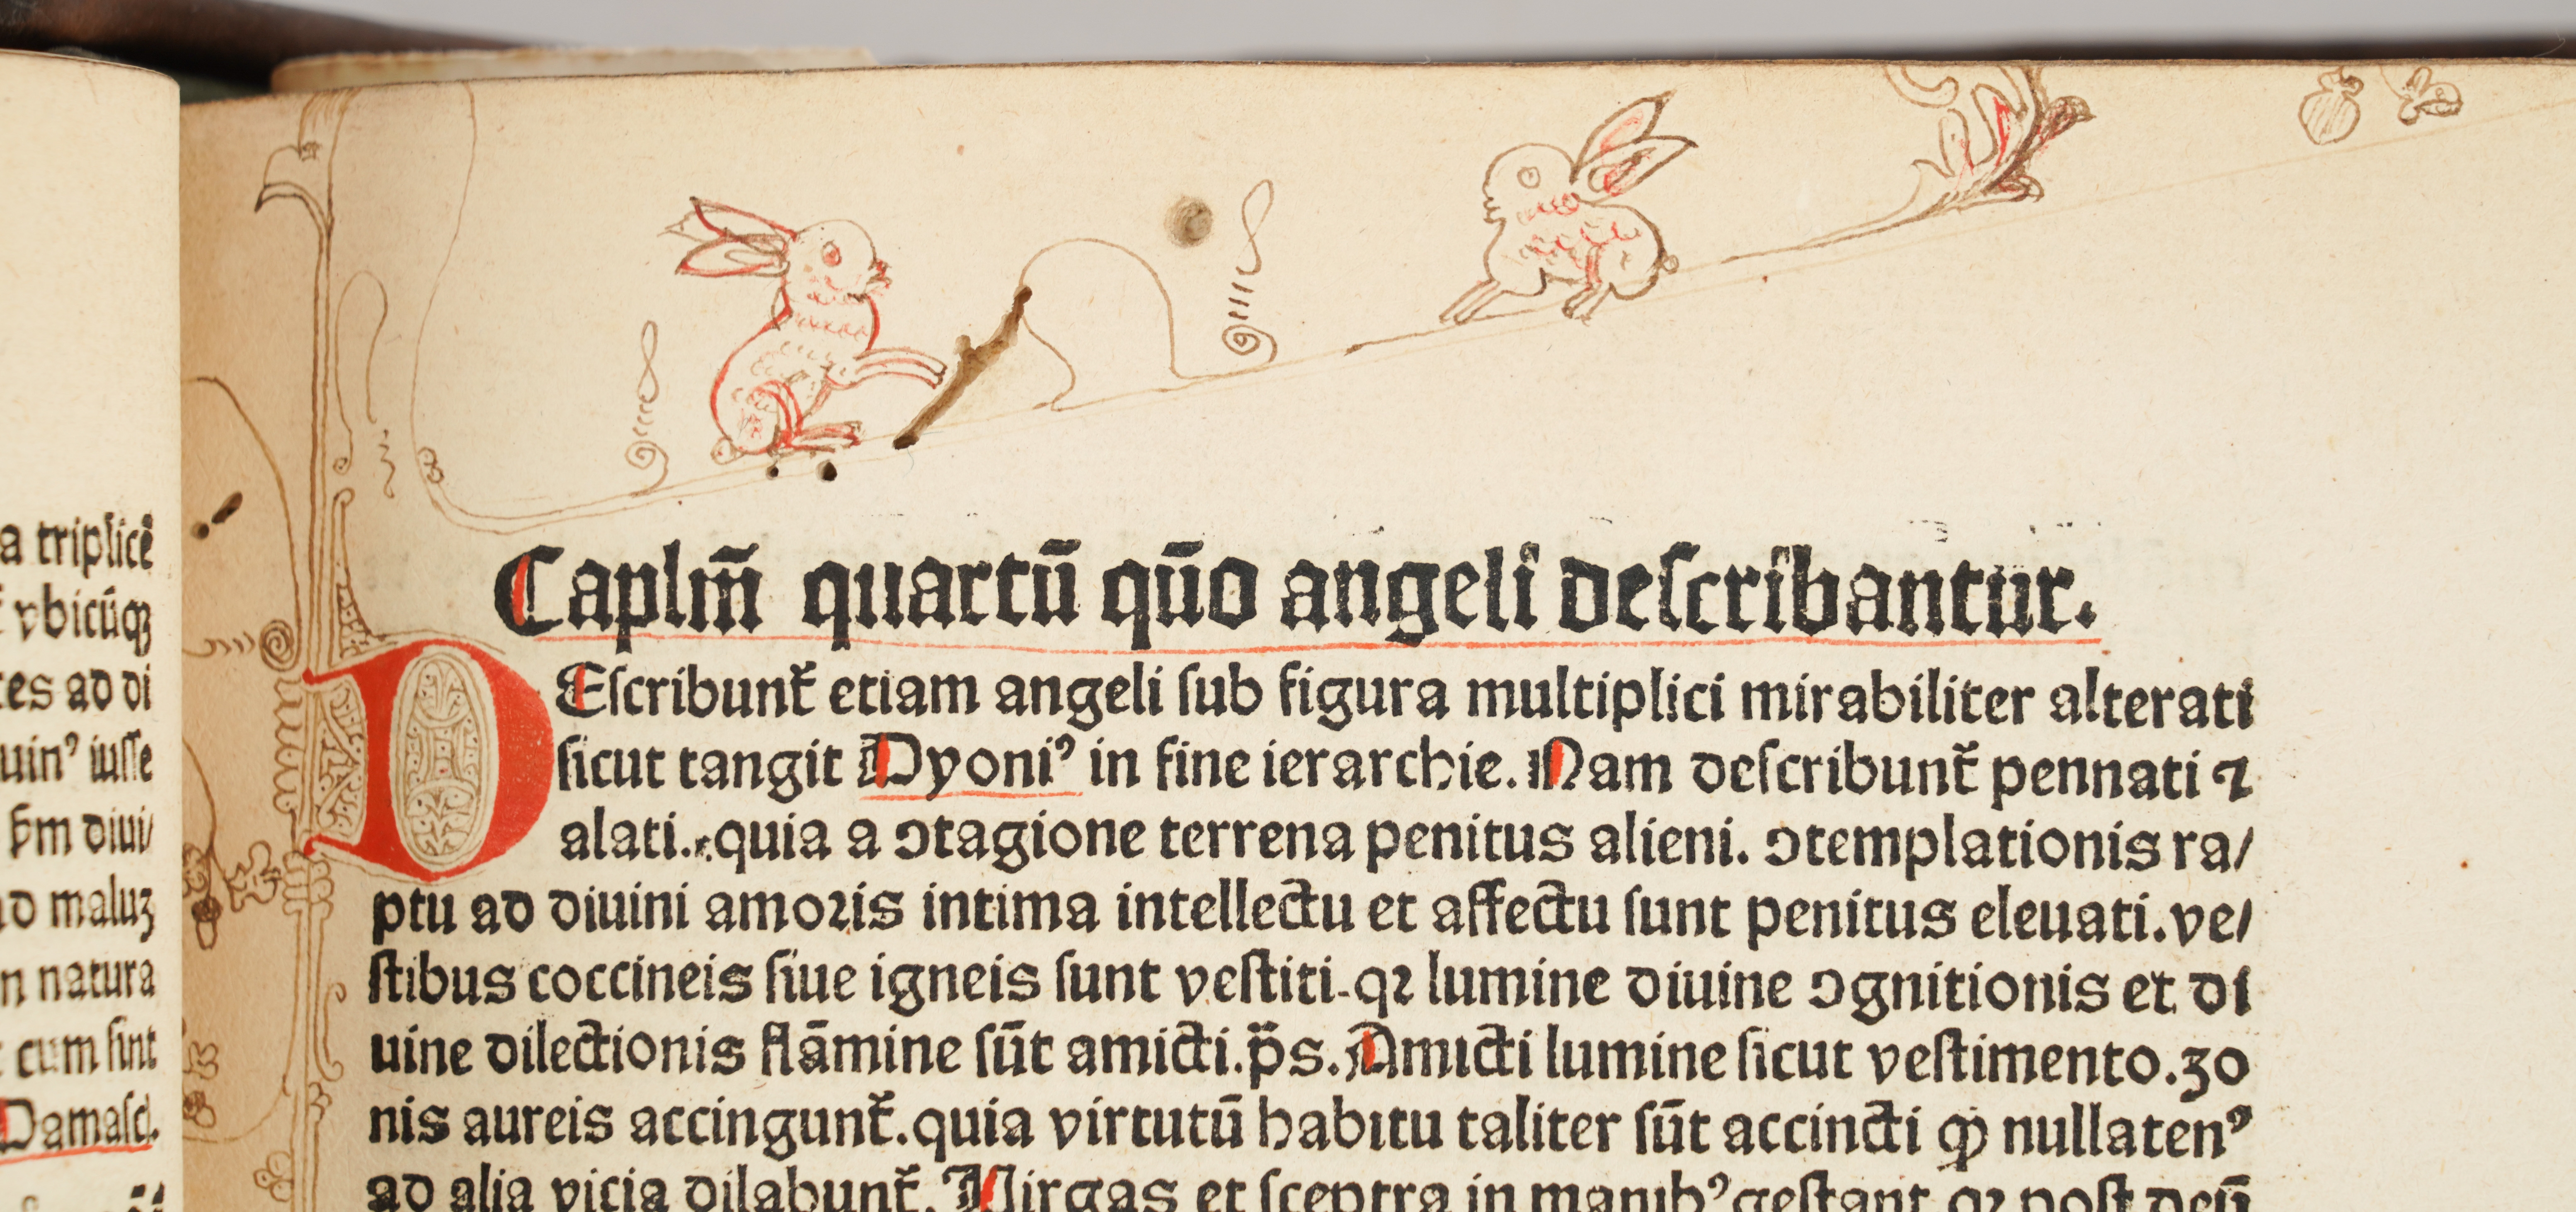 a triplicē
vbicūqꝫ
tes ad di
uinꝰ iusse
ẜm diui/
ad maluꝫ
n natura
cum sint
Damasc̄.
Caplm̄ quartū qūo angeli describantur.
DEscribunt᷑ etiam angeli sub figura multiplici mirabiliter alterati
sicut tangit Dyoniꝰ in fine ierarchie. Nam describunt᷑ pennati ⁊
alati. quia a ↄtagione terrena penitus alieni. ↄtemplationis ra/
ptu ad diuini amoris intima intellectu et affectu sunt penitus eleuati. ve/
stibus coccineis siue igneis sunt vestiti. qꝛ lumine diuine ↄgnitionis et di
uine dilectionis flāmine sūt amicti. p̄s. Amicti lumine sicut vestimento. zo
nis aureis accingunt᷑. quia virtutū habitu taliter sūt accincti ꝙ nullatenꝰ
ad alia vicia dilabunt᷑. Virgas et sceptra in manibꝰ gestant qꝛ post deū